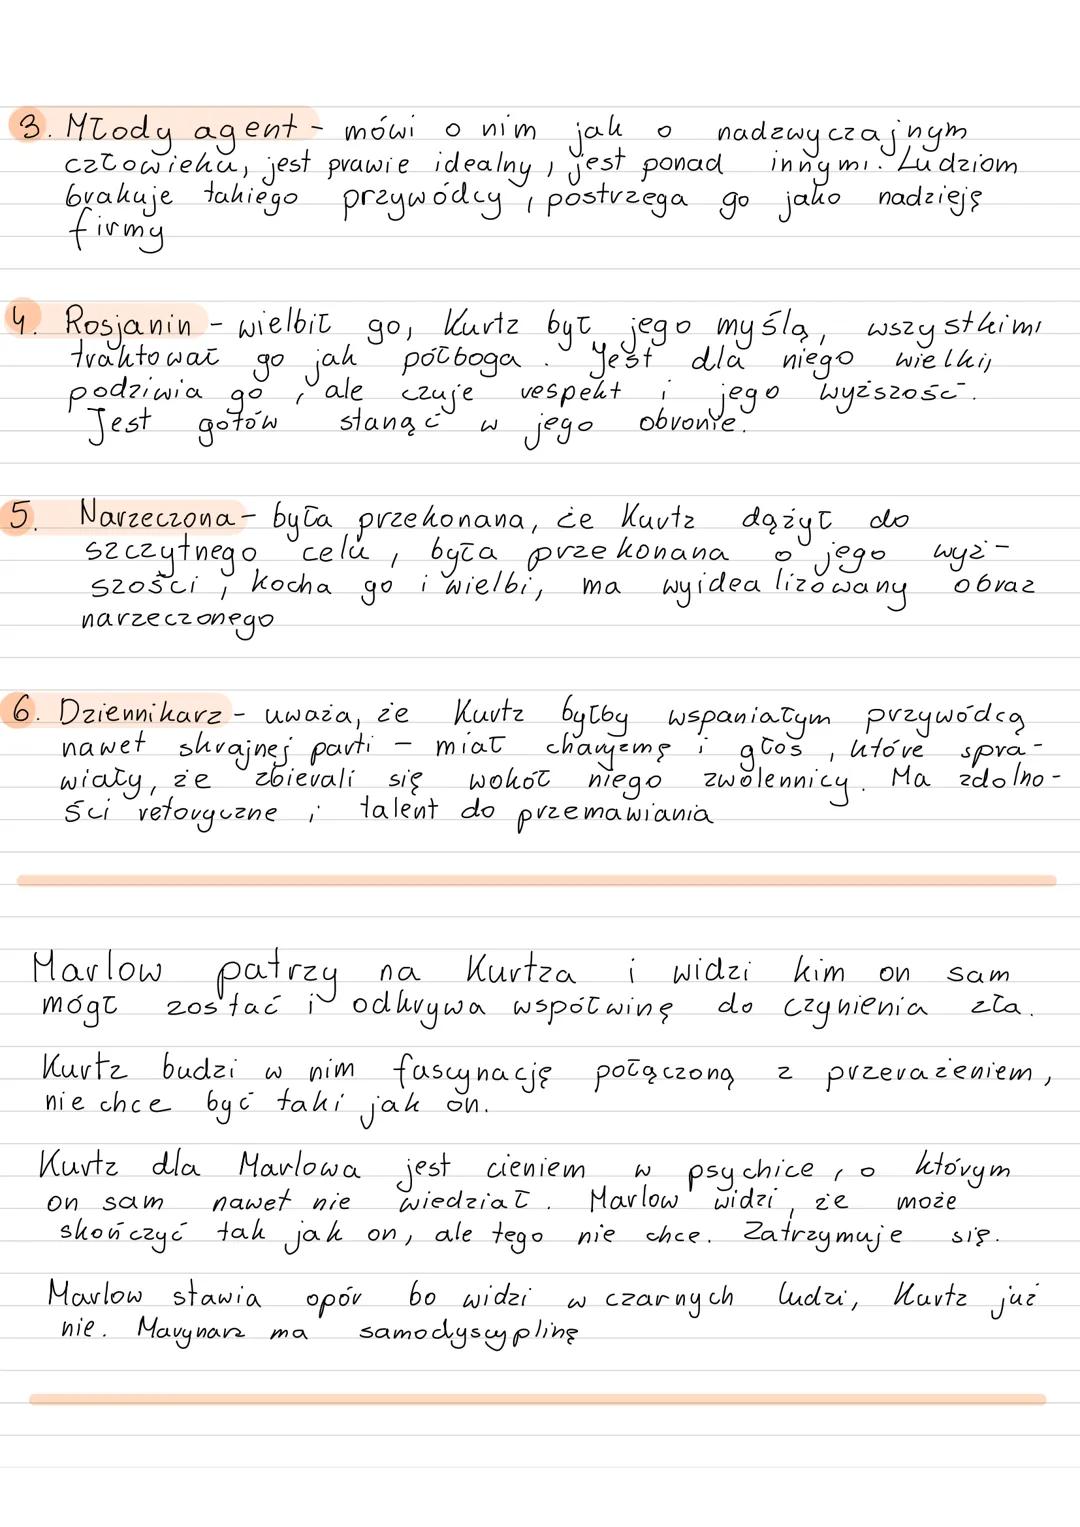 3. Młody agent - mówi o nim jak o nadzwyczajnym
człowieku, jest prawie idealny, jest ponad innymi. Ludziom
brakuje takiego przywódcy, postrzega go jako nadzieję
firmy
4. Rosjanin - wielbił go, Kurtz był jego myślą, wszystkimi
traktował go jak półboga. Jest dla niego wielki,
podziwia go, ale czuje respekt i jego wyższość.
Jest gotów stanąć w jego obronie.
5. Narzeczona - była przekonana, że Kurtz dążył do
szczytnego celu, była przekonana o jego wyż-
szości, kocha go i wielbi, ma wyidealizowany obraz
narzeczonego
6. Dziennikarz - uważa, że Kurtz byłby wspaniałym przywódcą
nawet skrajnej parti - miał charyzmę i głos, które spra-
wiały, że zbierali się wokół niego zwolennicy. Ma zdolno-
ści retoryczne i talent do przemawiania
Marlow patrzy na Kurtza i widzi kim on sam
mógł zostać i odkrywa współwinę do czynienia zła.
Kurtz budzi w nim fascynację połączoną z przerażeniem,
nie chce być taki jak on.
Kurtz dla Marlowa jest cieniem w psychice, o którym
on sam nawet nie wiedział. Marlow widzi, że może
skończyć tak jak on, ale tego nie chce. Zatrzymuje się.
Marlow stawia opór bo widzi w czarnych ludzi, Kurtz już
nie. Marynarz ma samodyscyplinę